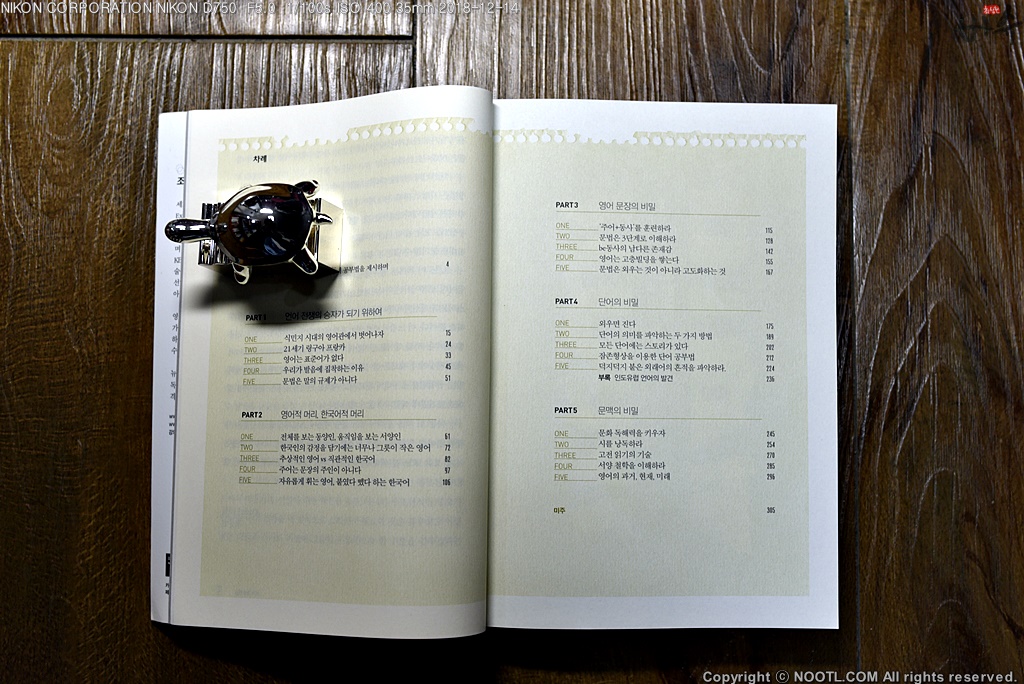 NIKON CORPORATION NIKON D750 F5.0 1/100s ISO 400 35mm 2018-12-14
차례
공부법을 제시하며 4
PART 1 언어 전쟁의 승자가 되기 위하여
ONE 식민지 시대의 영어관에서 벗어나자 15
TWO 21세기 링구아 프랑카 24
THREE 영어는 표준어가 없다 33
FOUR 우리가 발음에 집착하는 이유 45
FIVE 문법은 말의 규제가 아니다 51
PART 2 영어적 머리, 한국어적 머리
ONE 전체를 보는 동양인, 움직임을 보는 서양인 61
TWO 한국인의 감정을 담기에는 너무나 그릇이 작은 영어 72
THREE 추상적인 영어 vs 직관적인 한국어 82
FOUR 주어는 문장의 주인이 아니다 97
FIVE 자유롭게 휘는 영어, 붙였다 뗐다 하는 한국어 106
PART 3 영어 문장의 비밀
ONE '주어+동사'를 훈련하라 115
TWO 문법은 3단계로 이해하라 128
THREE be동사의 남다른 존재감 142
FOUR 영어는 고층빌딩을 쌓는다 155
FIVE 문법은 외우는 것이 아니라 고도화하는 것 167
PART 4 단어의 비밀
ONE 외우면 진다 175
TWO 단어의 의미를 파악하는 두 가지 방법 189
THREE 모든 단어에는 스토리가 있다 202
FOUR 잠존형상을 이용한 단어 공부법 212
FIVE 덕지덕지 붙은 외래어의 흔적을 파악하라. 224
부록 인도유럽 언어의 발견 236
PART 5 문맥의 비밀
ONE 문화 독해력을 키우자 245
TWO 시를 낭독하라 254
THREE 고전 읽기의 기술 270
FOUR 서양 철학을 이해하라 285
FIVE 영어의 과거, 현재, 미래 296
미주 305
Copyright ⓒ NOOTL.COM All rights reserved.